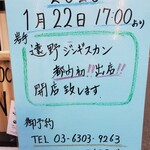 1月22日 17:00より
遠野ジンギスカン
都内初!!出店!!
開店致します
御予約
TEL 03-6303-9263